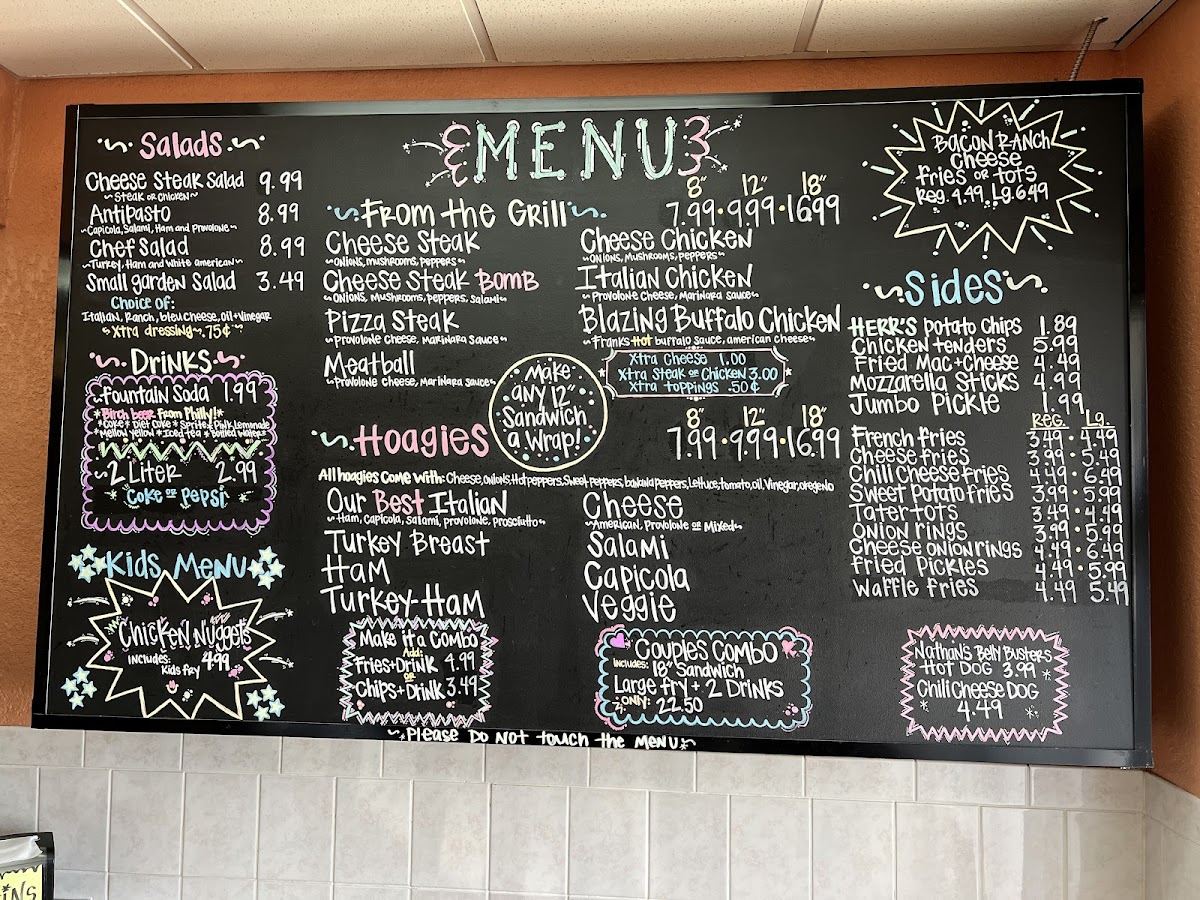 MENU
Salads
Cheese Steak Salad 9.99
~Steak or Chicken~
Antipasto 8.99
~Capicola, Salami, Ham and Provolone~
Chef Salad 8.99
~Turkey, Ham and White american~
Small garden Salad 3.49
Choice of:
Italian, Ranch, bleu Cheese, oil+Vinegar
Xtra dressing~.75¢
Drinks
fountain Soda 1.99
*Birch beer From Philly!*
*Coke * Diet Coke * Sprite * Pink Lemonade
*Mellow Yellow * Iced tea * Bottled Water*
~2 Liter 2.99
Coke or Pepsi
Kids Menu
Chicken Nuggets
INCLUDES: 4.99
Kids fry
From the Grill
8" 12" 18"
7.99 • 9.99 • 16.99
Cheese Steak
~Onions, mushrooms, peppers~
Cheese Steak BOMB
~Onions, Mushrooms, peppers, Salami~
Pizza Steak
~Provolone Cheese, Marinara Sauce~
Meatball
~Provolone Cheese, Marinara Sauce~
Cheese Chicken
~Onions, Mushrooms, peppers~
Italian Chicken
~Provolone Cheese, Marinara Sauce~
Blazing Buffalo Chicken
~Franks Hot buffalo sauce, american Cheese~
Xtra Cheese 1.00
Xtra Steak or Chicken 3.00
Xtra toppings .50¢
Make
any 12"
Sandwich
a Wrap!
Hoagies
8" 12" 18"
7.99 • 9.99 • 16.99
All hoagies Come With: Cheese, Onions, Hot peppers, Sweet peppers, banana peppers, Lettuce, tomato, oil, Vinegar, oregeno
Our Best Italian
~Ham, Capicola, Salami, Provolone, Prosciutto~
Turkey Breast
Ham
Turkey-Ham
Cheese
~American, Provolone or Mixed~
Salami
Capicola
Veggie
Make it a COMBO
Add:
Fries+Drink 4.99
or
Chips+Drink 3.49
Couples Combo
Includes: 18" Sandwich
Large fry + 2 Drinks
ONLY: 22.50
BACON RANCH
Cheese
fries or tots
Reg. 4.49, Lg. 6.49
Sides
HERR'S Potato Chips 1.89
Chicken tenders 5.99
Fried Mac+Cheese 4.49
Mozzarella Sticks 4.99
Jumbo Pickle 1.99
REG. Lg.
French fries 3.49 • 4.49
Cheese fries 3.99 • 5.49
Chili Cheese fries 4.49 • 6.49
Sweet Potato fries 3.99 • 5.99
Tater tots 3.49 • 4.49
Onion rings 3.99 • 5.99
Cheese Onion rings 4.49 • 6.49
fried Pickles 4.49 • 5.99
Waffle fries 4.49 5.49
Nathan's Belly Busters
Hot Dog 3.99
Chili Cheese DOG
4.49
~Please DO NOT touch the Menu~
INS